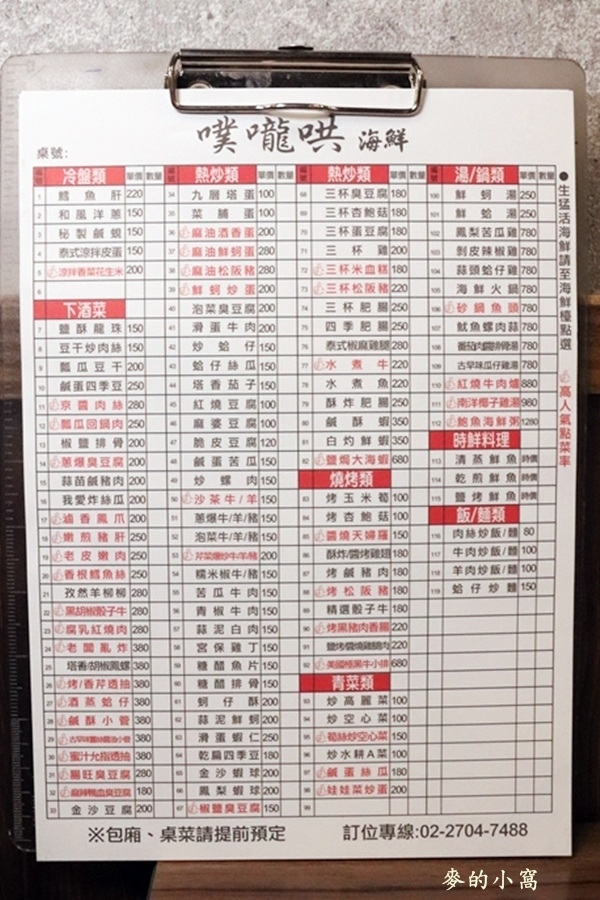 噗嚨哄 海鮮
桌號:
冷盤類 單價 數量
1 鱈魚肝 220
2 和風洋蔥 150
3 秘製鹹蜆 150
4 泰式涼拌皮蛋 150
5 涼拌香菜花生米 200
6
下酒菜
7 鹽酥龍珠 150
8 豆干炒肉絲 150
9 瓢瓜豆干 200
10 鹹蛋四季豆 250
11 京醬肉絲 280
12 瓢瓜回鍋肉 250
13 椒鹽排骨 200
14 蔥爆臭豆腐 200
15 蒜苗鹹豬肉 200
16 我愛炸絲瓜 200
17 滷香鳳爪 200
18 嫩煎豬肝 280
19 老皮嫩肉 250
20 香根鱈魚絲 250
21 孜然羊柳柳 280
22 黑胡椒骰子牛 280
23 腐乳紅燒肉 280
24 老闆亂炸 380
25 塔香/胡椒鳳螺 380
26 烤/香芹透抽 380
27 酒蒸蛤仔 380
28 鹹酥小管 380
29 380
30 蜜汁允指透抽 380
31 腸旺臭豆腐 280
32 麻辣鴨血臭豆腐 180
33 金沙豆腐 200
熱炒類 單價 數量
34 九層塔蛋 100
35 菜脯蛋 100
36 麻油酒香蛋 200
37 麻油鮮蚵蛋 280
38 麻油松阪豬 280
39 鮮蚵炒蛋 200
40 泡菜臭豆腐 200
41 滑蛋牛肉 200
42 炒蛤仔 150
43 蛤仔絲瓜 150
44 塔香茄子 150
45 紅燒豆腐 100
46 麻婆豆腐 100
47 脆皮豆腐 120
48 鹹蛋苦瓜 150
49 炒螺肉 150
50 沙茶牛/羊 150
51 蔥爆牛/羊/豬 150
52 泡菜牛/羊/豬 150
53 芹菜爆炒牛/羊 200
54 糯米椒牛/豬 150
55 苦瓜牛肉 150
56 青椒牛肉 150
57 蒜泥白肉 150
58 宮保雞丁 150
59 糖醋魚片 150
60 糖醋排骨 150
61 蚵仔酥 200
62 蒜泥鮮蚵 200
63 滑蛋蝦仁 250
64 乾扁四季豆 180
65 金沙蝦球 200
66 鳳梨蝦球 200
67 椒鹽臭豆腐 150
熱炒類 單價 數量
68 三杯臭豆腐 180
69 三杯杏鮑菇 180
70 三杯蛋豆腐 180
71 三杯雞 200
72 三杯米血糕 180
73 三杯松阪豬 220
74 三杯肥腸 250
75 四季肥腸 250
76 泰式椒麻雞腿 280
77 水煮牛 220
78 水煮魚 220
79 酥炸肥腸 250
80 鹹酥蝦 350
81 白灼鮮蝦 350
82 鹽焗大海蝦 680
燒烤類
83 烤玉米筍 100
84 烤杏鮑菇 100
85 醬燒天婦羅 150
86 酥炸/醬烤雞翅 180
87 烤鹹豬肉 180
88 烤松阪豬 180
89 精選骰子牛 180
90 烤黑豬肉香腸 220
91 220
92 美國極黑牛小排 680
青菜類
93 炒高麗菜 100
94 炒空心菜 100
95 筍絲炒空心菜 150
96 炒水耕A菜 100
97 鹹蛋絲瓜 180
98 娃娃菜炒蛋 200
99
湯/鍋類 單價 數量
100 鮮蚵湯 250
101 鮮蛤湯 250
102 鳳梨苦瓜雞 780
103 剝皮辣椒雞 780
104 蒜頭蛤仔雞 780
105 海鮮火鍋 780
106 砂鍋魚頭 780
107 魷魚螺肉蒜 780
108 番茄肉醬排骨湯 780
109 古早味瓜仔雞湯 780
110 紅燒牛肉爐 880
111 南洋椰子雞湯 980
112 鮑魚海鮮粥 1280
時鮮料理
113 清蒸鮮魚 時價
114 乾煎鮮魚 時價
115 鹽烤鮮魚 時價
飯/麵類
116 肉絲炒飯/麵 80
117 牛肉炒飯/麵 100
118 羊肉炒飯/麵 100
119 蛤仔炒麵 150
●生猛活海鮮請至海鮮檯點選
高人氣點菜率
※包廂、桌菜請提前預定 訂位專線:02-2704-7488
麥的小窩